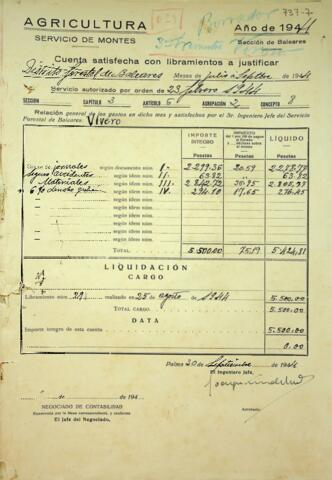 AGRICULTURA
SERVICIO DE MONTES
629
Borrador
737-7
Año de 1944
Sección de Baleares
Cuenta satisfecha con libramientos a justificar
Distrito Forestal de Baleares Meses de julio a Septbre de 1944
Servicio autorizado por orden de 23 febrero 1944
SECCIÓN CAPÍTULO 3 ARTÍCULO 5 AGRUPACIÓN 2 CONCEPTO 8
Relación general de los gastos en dicho mes y satisfechos por el Sr. Ingeniero Jefe del Servicio
Forestal de Baleares. Vivero
IMPORTE ÍNTEGRO IMPUESTO LÍQUIDO
Pesetas Pesetas Pesetas
jornales según documento núm. I. 2.299.36 20.59 2.278.77
Seguros Accidentes según ídem núm. II. 63.82 63.82
Materiales según ídem núm. III. 2.842.72 36.95 2.805.77
según ídem núm. IV. 294.10 17.65 276.45
según ídem núm.
según ídem núm.
según ídem núm.
TOTAL 5.500.00 75.19 5.424.81
LIQUIDACIÓN
CARGO
Libramiento núm. realizado en 25 agosto de 1944 5.500.00
TOTAL CARGO 5.500.00
DATA
Importe íntegro de esta cuenta 5.500.00
0.00
Palma 30 de Septiembre de 1944
El Ingeniero Jefe,
de de 194
NEGOCIADO DE CONTABILIDAD
Examinada por la Mesa correspondiente, y conforme
El Jefe del Negociado,